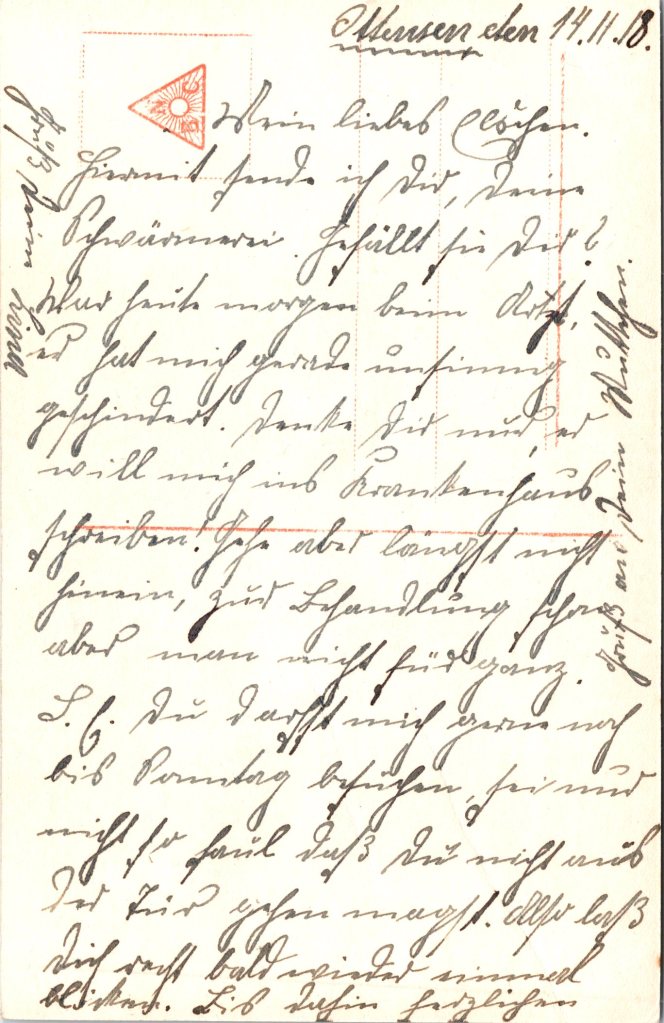 Ottensen den 14.11.18.
Mein liebes Clöschen.
Hiermit sende ich Dir, Deine
Schwärmerei. Gefällt sie Dir?
War heute morgen beim Artzt,
er hat mich gerade unsinnig
geschindert. Denke Dir nur, er
will mich ins Krankenhaus
schreiben! Gehe aber längst nicht
hinein, zur Behandlung schon
aber man nicht für ganz.
L. C. Du darfst mich gerne noch
bis Sonntag besuchen, sei nur
nicht so faul daß Du nicht aus
der Tür gehen magst. Also laß
Dich recht bald wieder einmal
blicken. Bis dahin herzlichen
Gruß Deine
Gruß an Dein Muttchen.